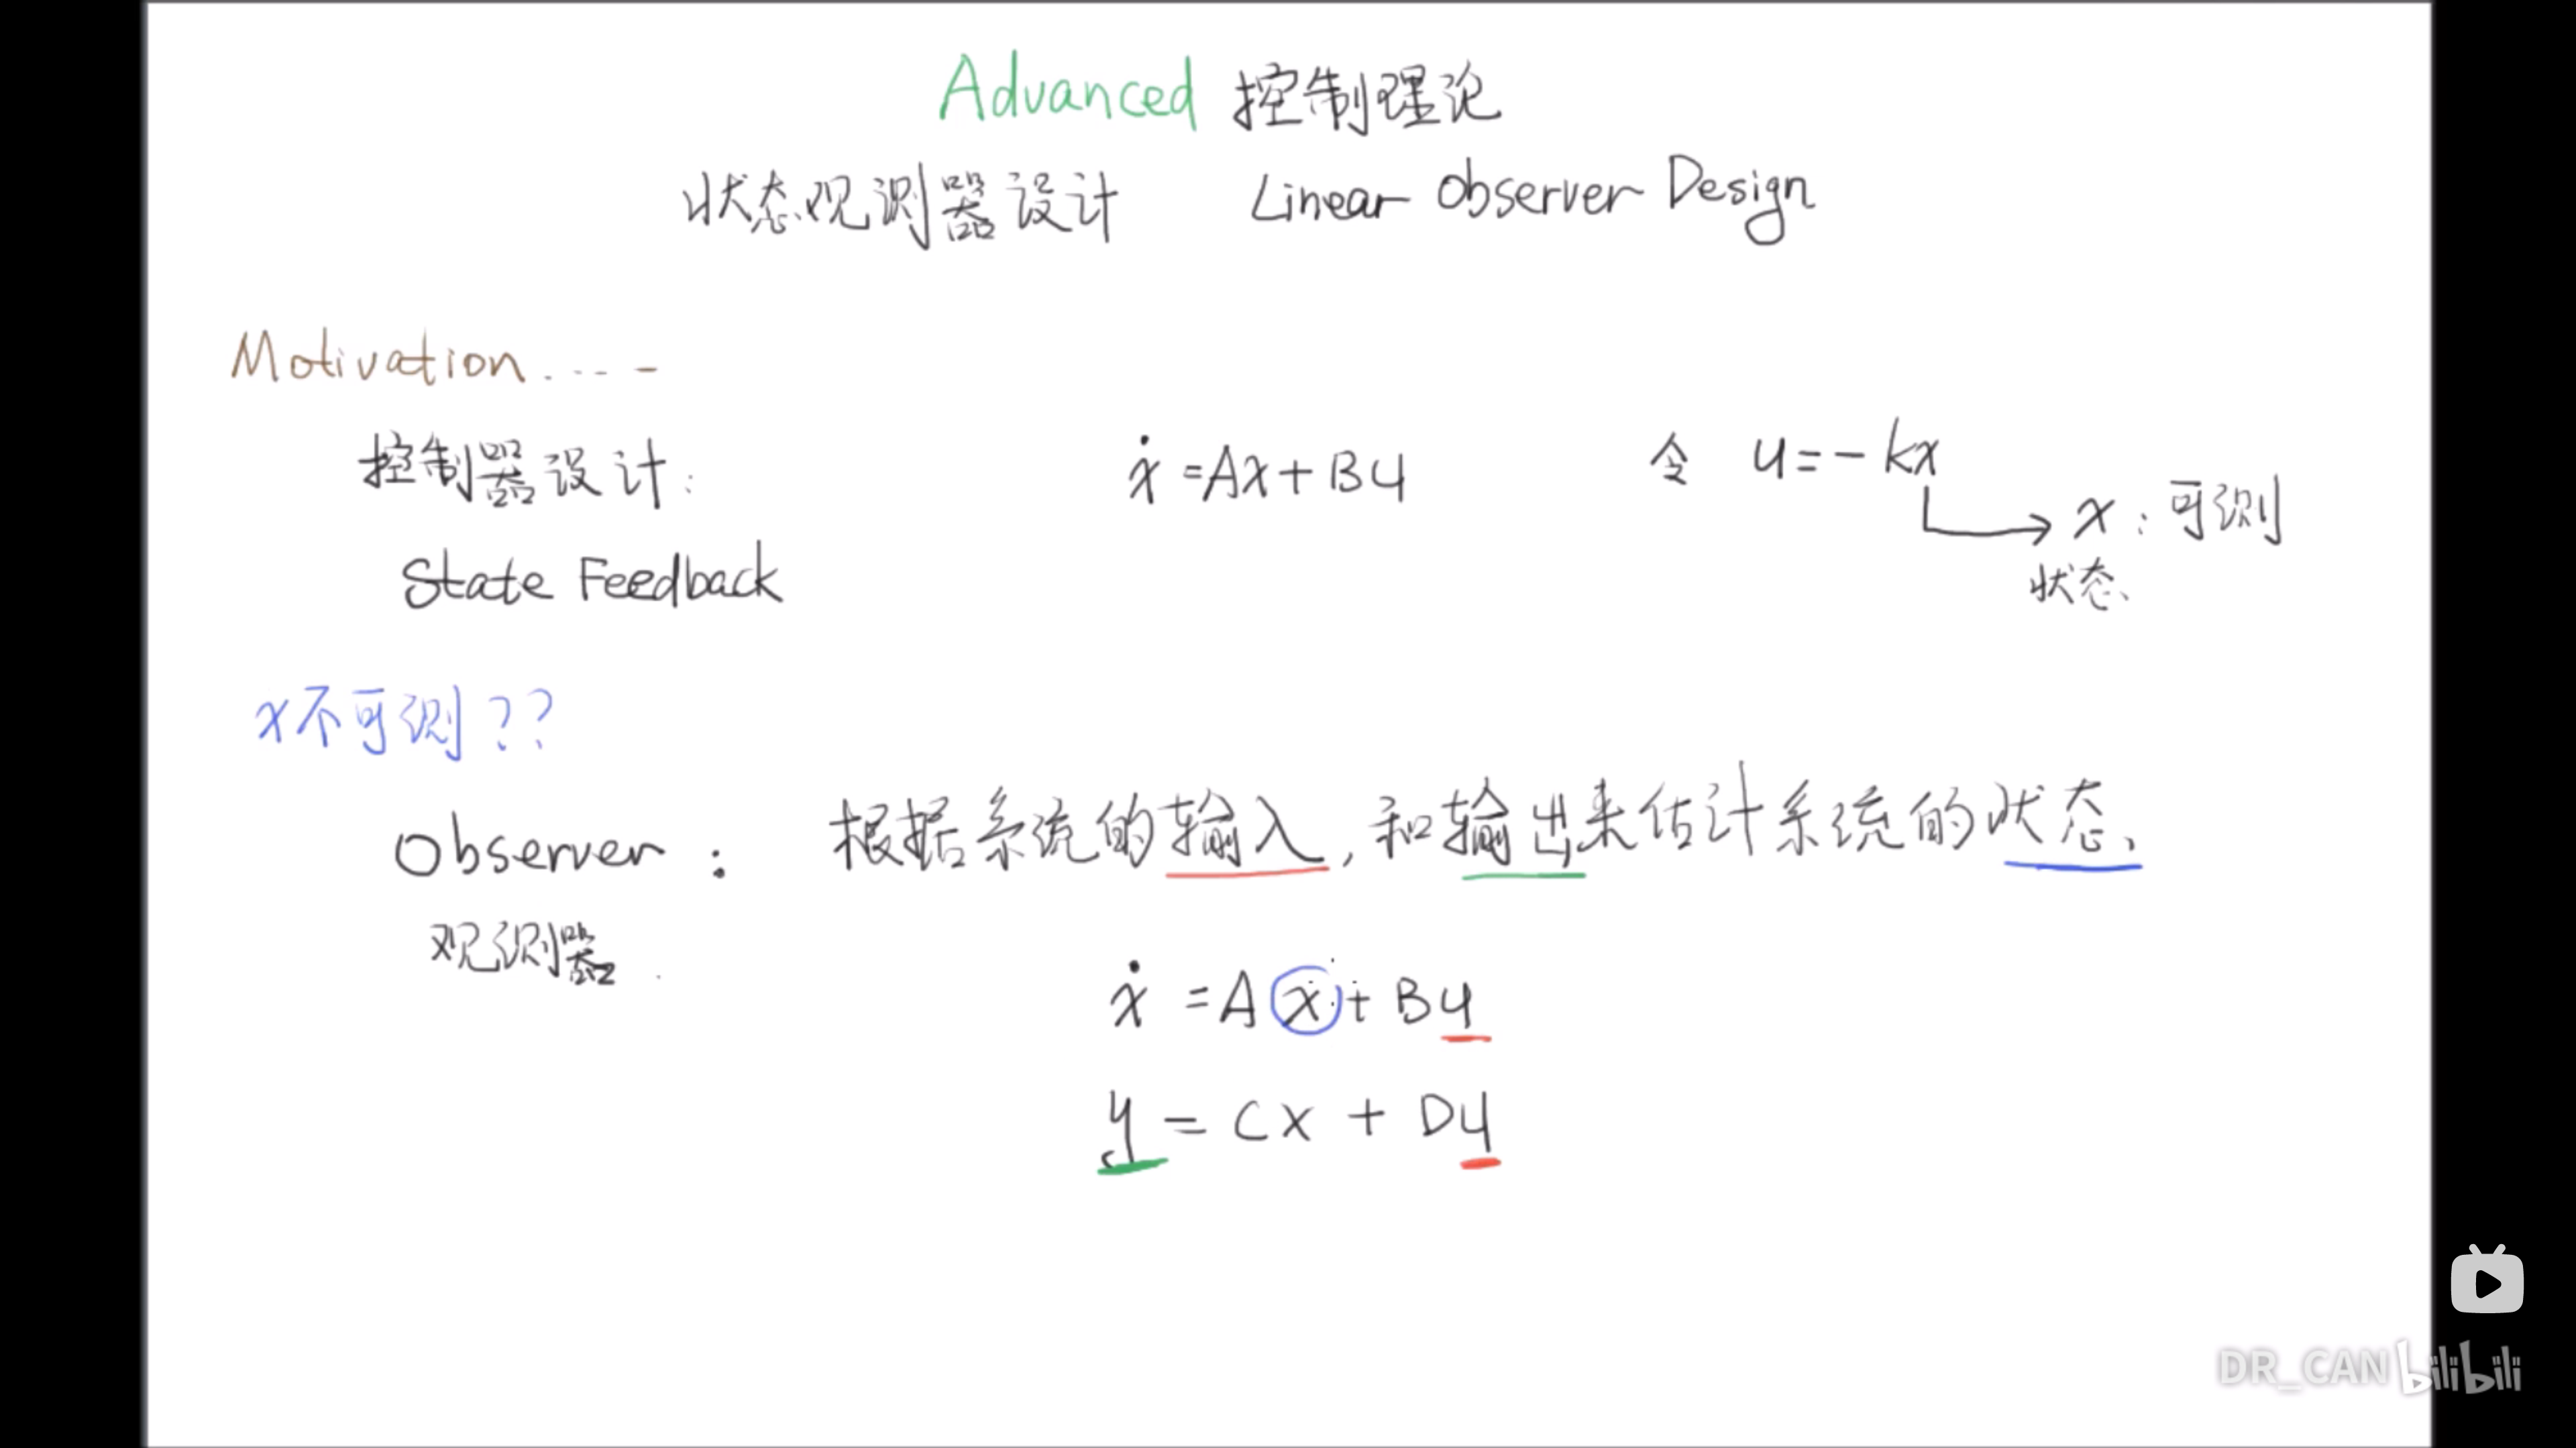 Advanced 控制理论
状态观测器设计 Linear Observer Design
Motivation.....
控制器设计: ẋ = Ax + Bu 令 u = - kx
x: 可测
State Feedback 状态
x不可测??
Observer: 根据系统的输入,和输出来估计系统的状态、
观测器.
ẋ = Ax + Bu
y = Cx + Du
DR_CAN bilibili